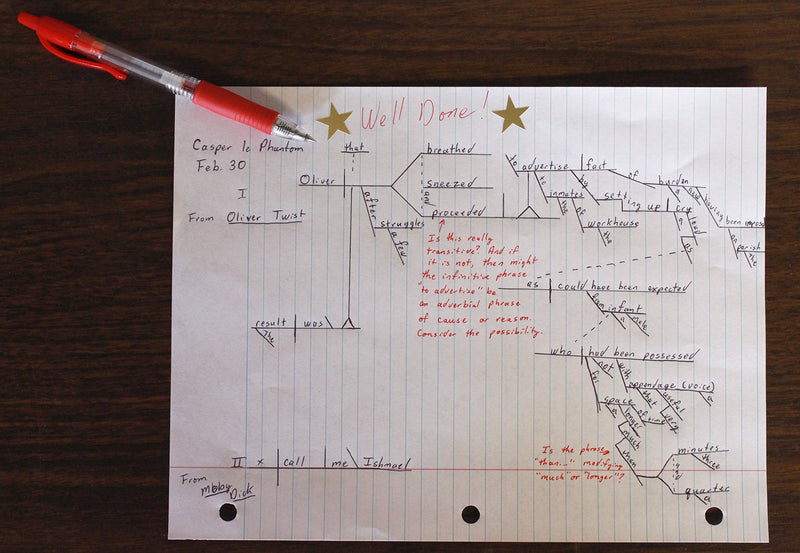 Well Done!
Casper le Phantom
Feb. 30
I
From Oliver Twist
that
Oliver
breathed
sneezed
and
proceeded
after
struggles
a few
to advertise fact
to inmates
the
of workhouse
the
by setting up cry
a
loud
as
of burden
a
and
having been imposed
on parish
the
Is this really
transitive? And if
it is not, then might
the infinitive phrase
"to advertize" be
an adverbial phrase
of cause or reason.
Consider the possibility.
as could have been expected
from infant
male
result was
The
who had been possessed
not
with
appendage (voice)
a
that
useful
very
for
space of time
a
longer
much
than
minutes
three
and
quarter
a
Is the phrase
"than..." modifying
"much" or "longer"?
II x call me Ishmael
From
Mobby Dick